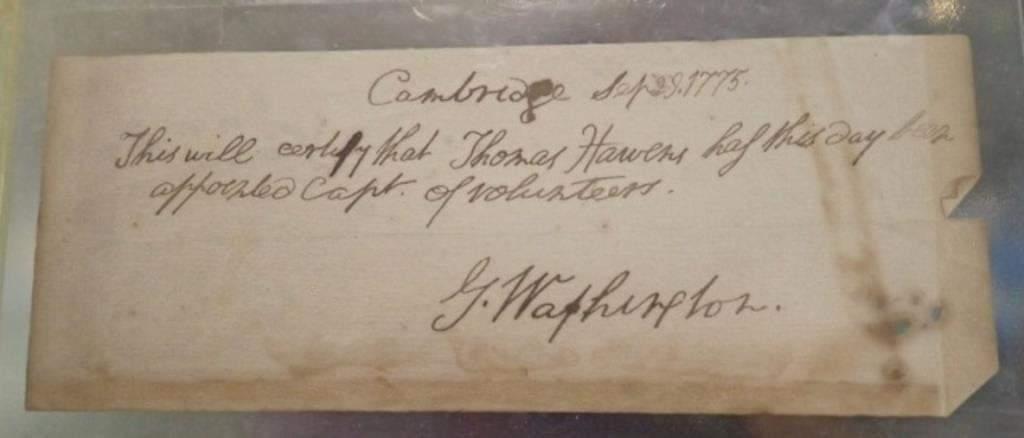 Cambridge Sep 29. 1775.
This will certify that Thomas Hawens has this day been
appointed Capt. of volunteers.
G. Washington.